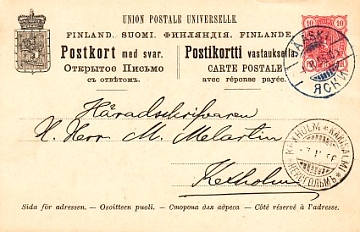 UNION POSTALE UNIVERSELLE.
FINLAND. SUOMI. ФИНЛЯНДІЯ. FINLANDE.
Postkort med svar. Postikortti vastauksineen
Открытое Письмо CARTE POSTALE
съ отвѣтомъ. avec réponse payée.
10 10
JÄÄSKI
ЯСКИ
Häradsskrifvaren
H. Herr M. Melartin
Kexholm
KEXHOLM KÄKISALMI
КЕКСГОЛЬМЪ
Sida för adressen. - Osoitteen puoli. - Сторона для адреса - Côté réservé à l'adresse.